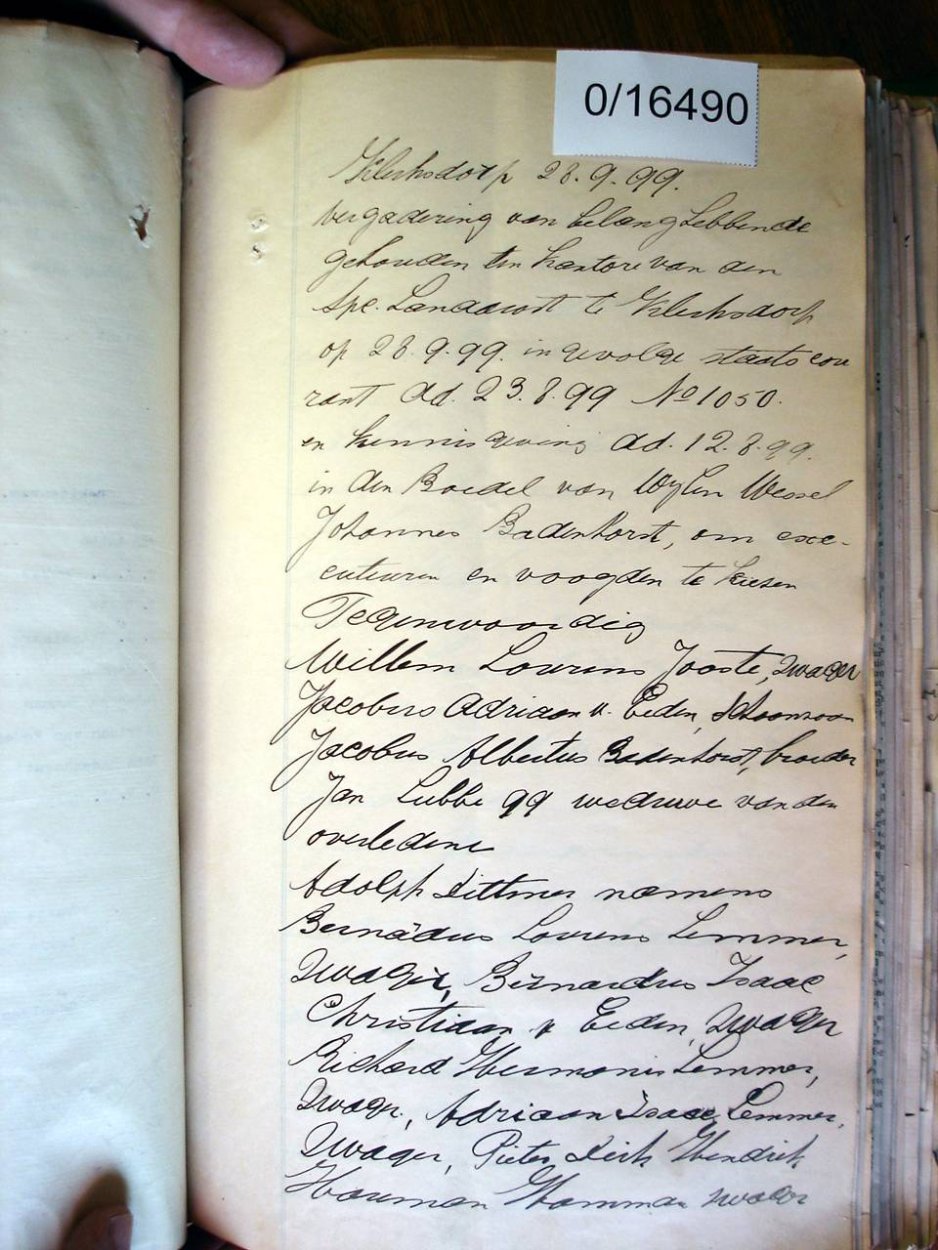 0/16490
Klerksdorp 28.9.99.
Vergadering van belanghebbende
gehouden ten kantore van den
Spe. Landdrost te Klerksdorp
op 28.9.99. ingevolge staats cou
rant dd. 23.8.99 No 1050.
en kennisgeving dd. 12.8.99.
in den Boedel van Wylen Wessel
Johannes Badenhorst, om exe-
cuteuren en voogden te kiesen
Tegenwoordig
Willem Lourens Jooste, zwager
Jacobus Adriaan v. Eeden, schoonzoon
Jacobus Albertus Badenhorst, broeder
Jan Lubbe qq weduwe van den
overledene
Adolph Dittmer namens
Bernardus Lourens Lemmer,
zwager, Bernardus Isaac
Christiaan v Eeden, zwager
Richard Hermanis Lemmer,
zwager, Adriaan Isaac Lemmer,
zwager, Pieter Dirk Hendrik
Hamman zwager